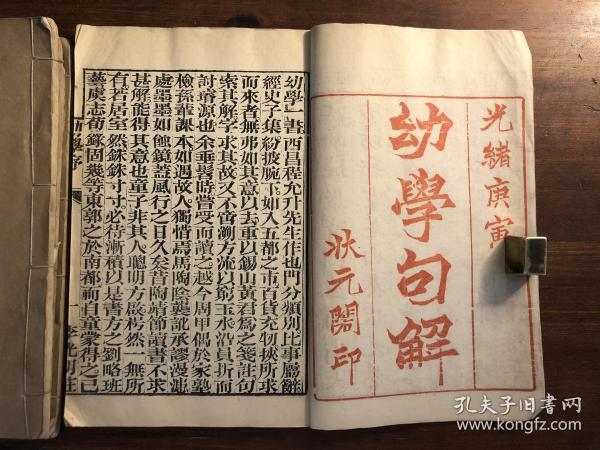 光緒庚寅
幼學句解
狀元閣印
幼學一書西昌程允升先生作也門分類別比事屬辭
經史子集紛披腕下如入五都之市百貨充牣挾所求
而來者無弗如其意以去重以錫山黃君爲之箋註句
索其解字求其故又不啻溯方流以窮玉水沿員折而
討璿源也余垂髫時嘗受而讀之越今周甲偶於家塾
檢孫輩課本如遇故人獨惜焉馬陶陰襲訛承謬漫漶
處墨墨如蝕鏡蓋風行之日久矣昔陶靖節讀書不求
甚解能得其意也童子非其人聰明方啟枵然一無所
有若居室然銖銖寸寸必待漸積以是書方之劉略班
藝虞志荀錄固幾等東郭之於南都而自童蒙得之已
幼學序
孔夫子旧書网
www.kongfz.com